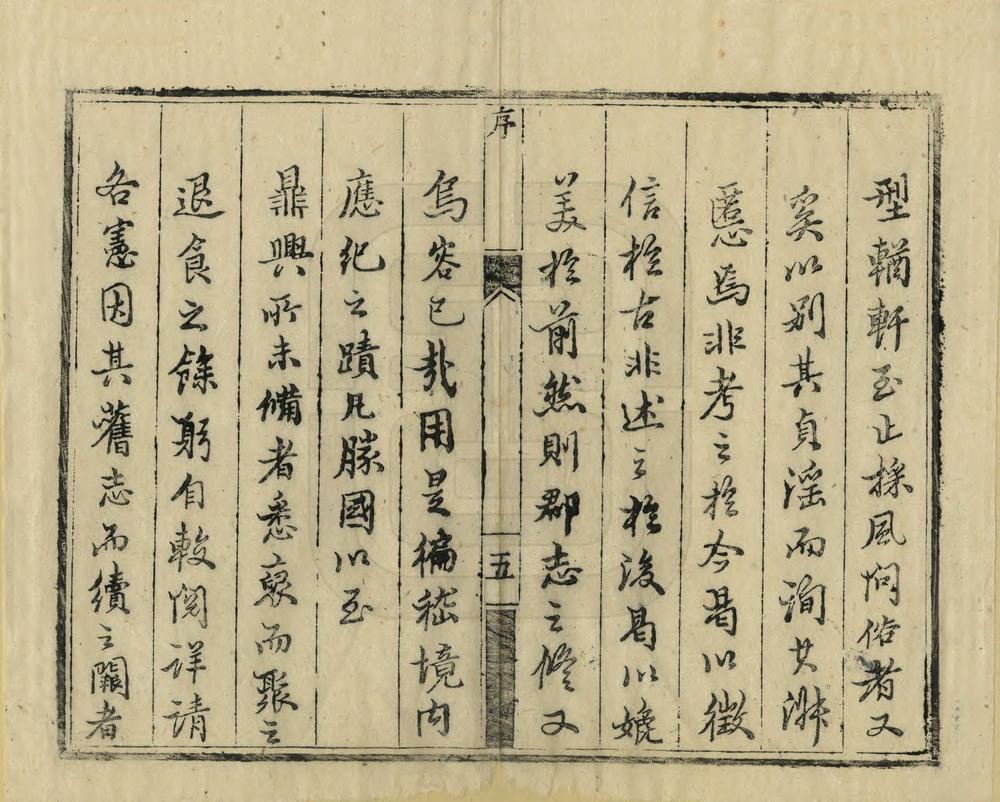 型輶軒至止採風問俗者又
奚以別其貞淫而詢其淑
慝焉非考之於今曷以徵
信於古非述之於後曷以媲
美於前然則郡志之修又
序
五
烏容已哉用是徧嵇境内
應紀之蹟凡勝國以至
鼎興所未備者悉裒而聚之
退食之餘躬自較閱詳請
各憲因其舊志而續之闕者